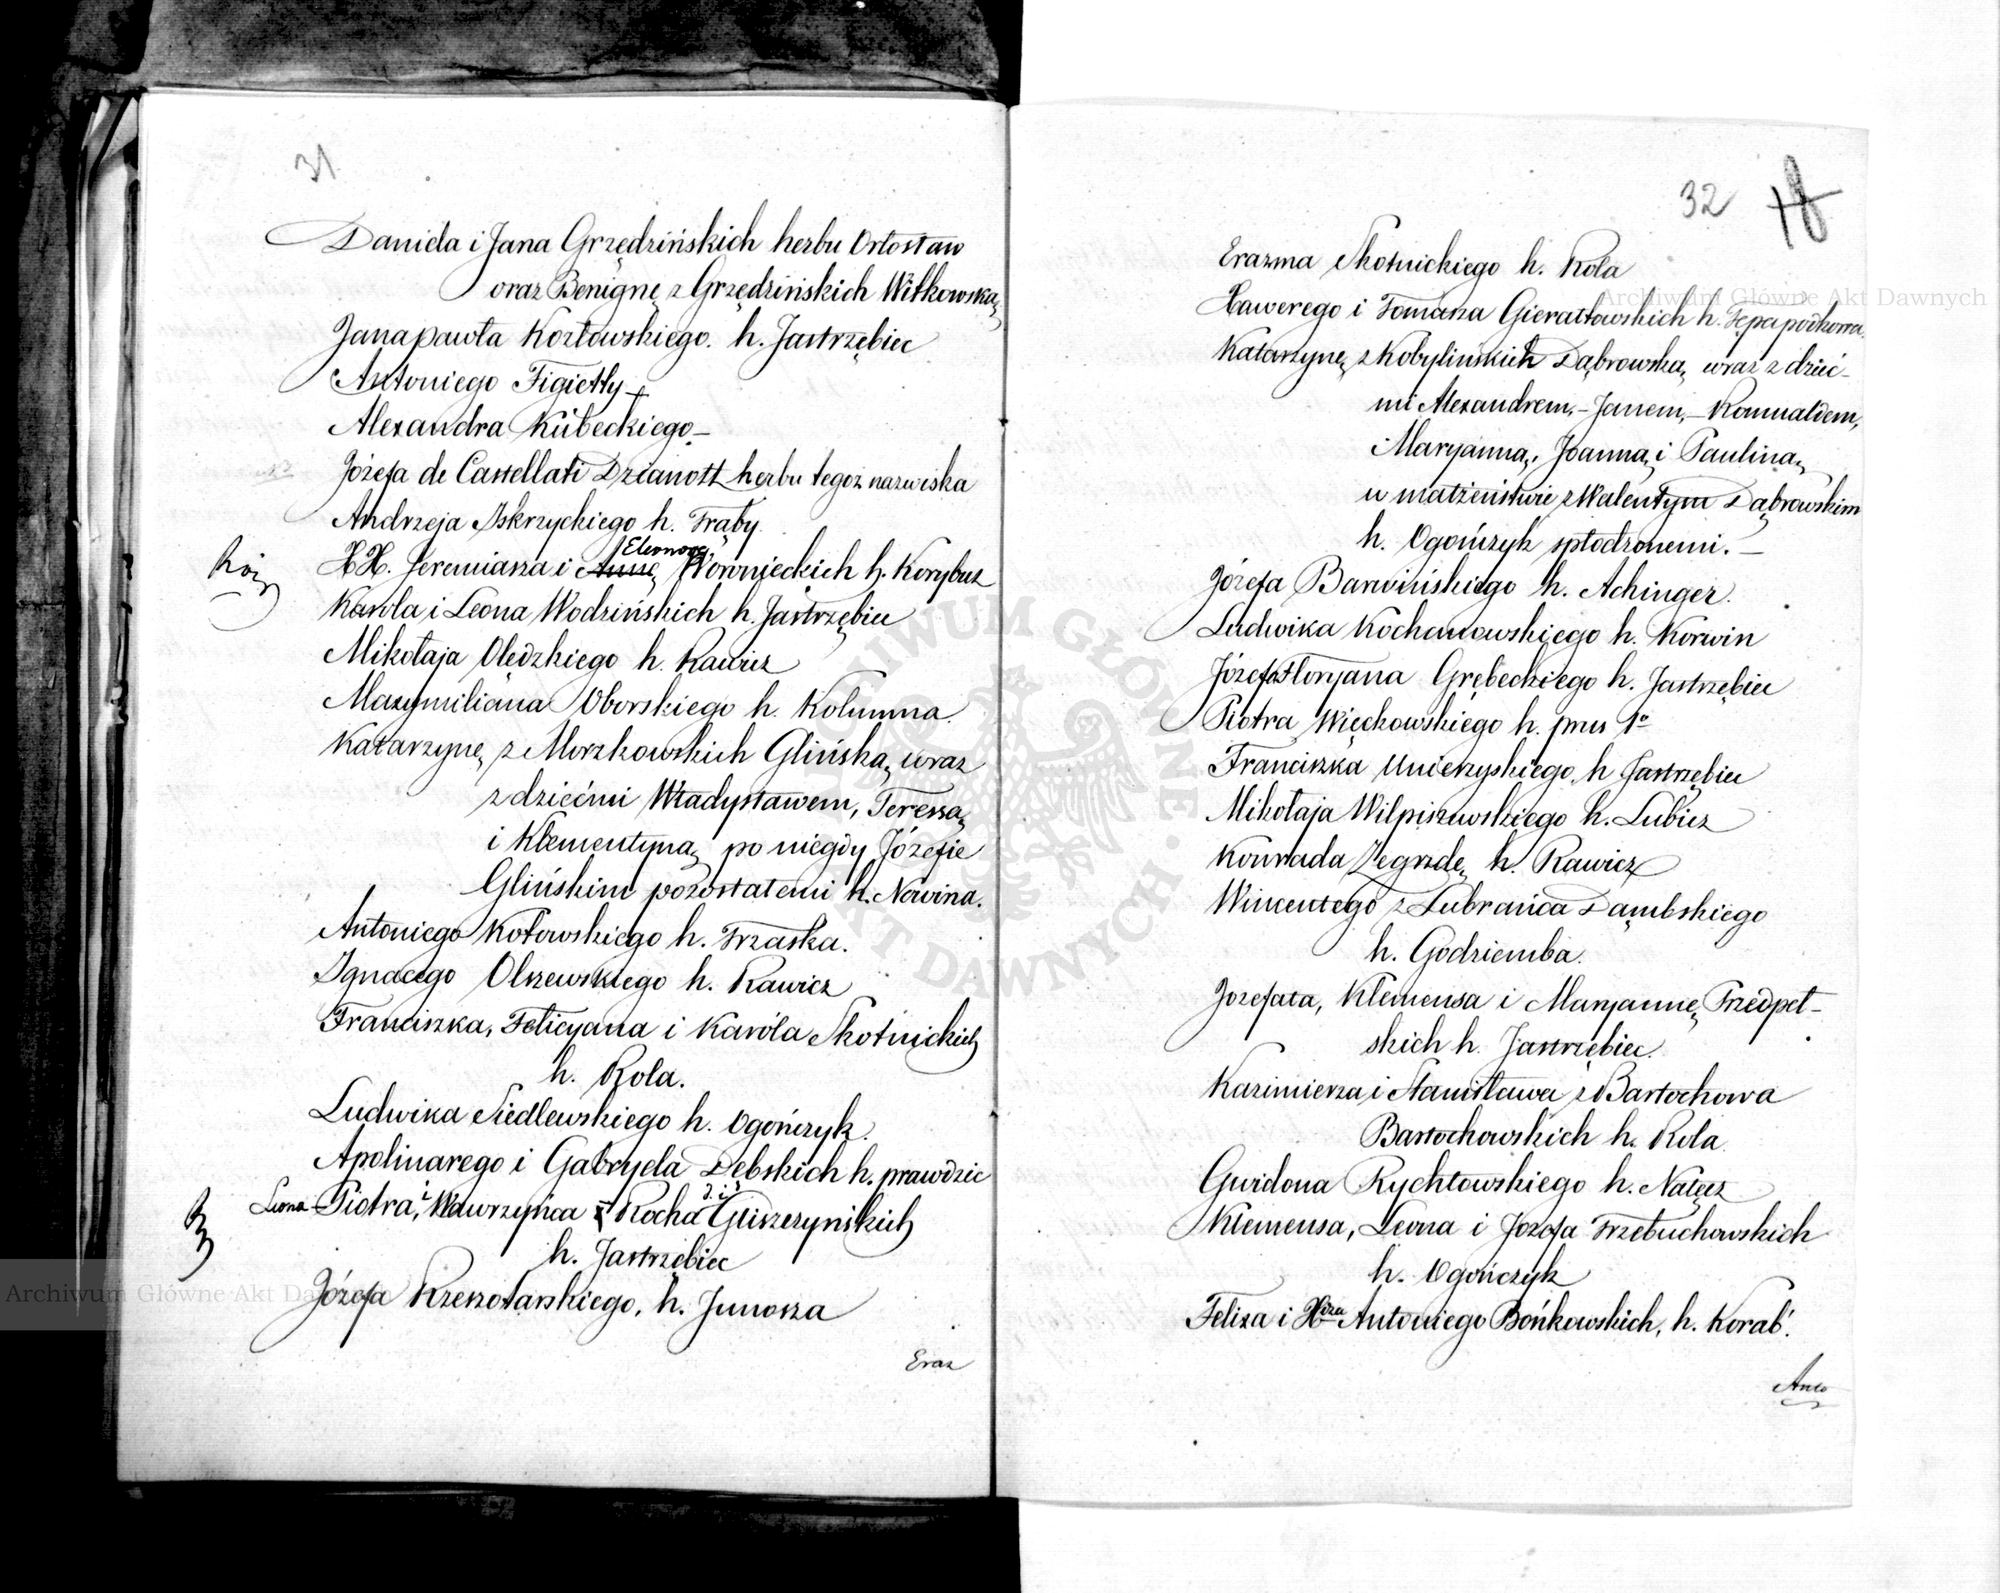 31
Daniela i Jana Grzędzińskich herbu Ostostaw
oraz Benignę z Grzędzińskich Witkowską
Jana pawła Kozłowskiego. h. Jastrzębiec
Antoniego Figietty
Alexandra Kubeckiego
Józefa de Castellati Dzianott herbu tegoż nazwiska
Andrzeja Iskrzyckiego h. Trąby
XX. Jeremiasza i Annę Eleonorę Woronieckich h. Korybut
Karola i Leona Wodzińskich h. Jastrzębiec
Mikołaja Olędzkiego h. Rawicz
Maxymiliana Oborskiego h. Kolumna.
Katarzynę z Morzkowskich Glińską wraz
z dziećmi Władysławem, Teressą
i Klementyną po niegdy Józefie
Glińskim pozostałemi h. Nowina.
Antoniego Kotowskiego h. Trzaska.
Ignacego Olszewskiego h. Rawicz
Franciszka, Felicyana i Karóla Skotnickich
h. Rola.
Ludwika Siedlewskiego h. Ogończyk.
Apolinarego i Gabryela Dębskich h. prawdzic
Leona Piotra, i Wawrzyńca i Rocha Gliszczyńskich
h. Jastrzębiec
Józefa Rzeszotarskiego, h. Junosza
Eraz
32
18
Erazma Skotnickiego h. Rola
Xawerego i Tomasza Gierałtowskich h. Tępapodkowa
Katarzynę z Kobylińskich Dąbrowską wraz z dzieć-
mi Alexandrem,- Janem,- Romualdem,
i Maryanną, Joanną i Pauliną
w małżeństwie z Walentym Dąbrowskim
h. Ogończyk spłodzonemi.-
Józefa Barwińskiego h. Achinger.
Ludwika Kochanowskiego h. Korwin
Józefa Floryana Grębeckiego h. Jastrzębiec
Piotra Więckowskiego h. prus 1o
Franciszka Unierzyskiego, h Jastrzębiec
Mikołaja Wilpiszewskiego h. Lubicz
Konrada Zegrzdę h. Rawicz
Wincentego z Lubrańca Dąmbskiego
h. Godziemba.
Jozefata, Klemensa i Maryannę Przedpeł-
skich h. Jastrzębiec.
Kazimierza i Stanisława z Bartochowa
Bartochowskich h. Rola.
Gwidona Rychłowskiego h. Nałęcz
Klemensa, Leona i Jozefa Trzebuchowskich
h. Ogończyk
Felixa i Xdza Antoniego Bońkowskich, h. Korab'.
Anto
Archiwum Główne Akt Dawnych
Archiwum Główne Akt Dawnych
ARCHIWUM GŁÓWNE AKT DAWNYCH